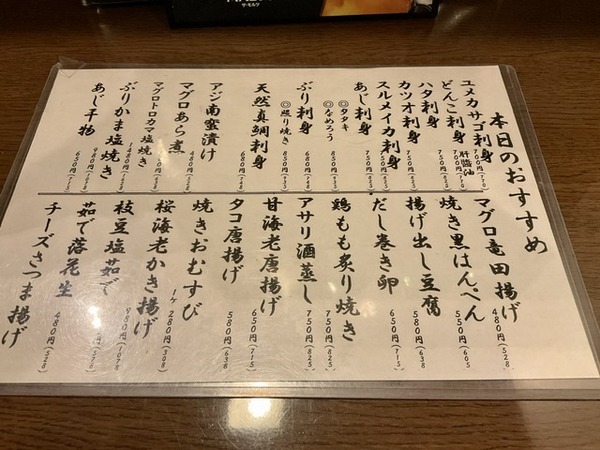 本日のおすすめ
ユメカサゴ刺身
どんこ刺身 肝醤油
ハタ刺身
カツオ刺身
スルメイカ刺身 750円
あじ刺身 750円
◎タタキ
◎なめろう 850円
ぶり刺身 850円
◎照り焼き 850円
天然真鯛刺身 680円
アジ南蛮漬け
マグロあら煮 480円
マグロトロカマ塩焼き 1480円
ぶりかま塩焼き 980円
あじ干物 650円(715)
マグロ竜田揚げ 480円(528)
焼き黒はんぺん 550円(605)
揚げ出し豆腐 580円(638)
だし巻き卵 650円(715)
鶏もも炙り焼き 750円(825)
アサリ酒蒸し 750円(825)
甘海老唐揚げ 650円(715)
タコ唐揚げ 580円(638)
焼きおむすび 1ケ 280円(308)
桜海老かき揚げ
枝豆塩茹で 980円(1078)
茹で落花生
チーズさつま揚げ 480円(528)